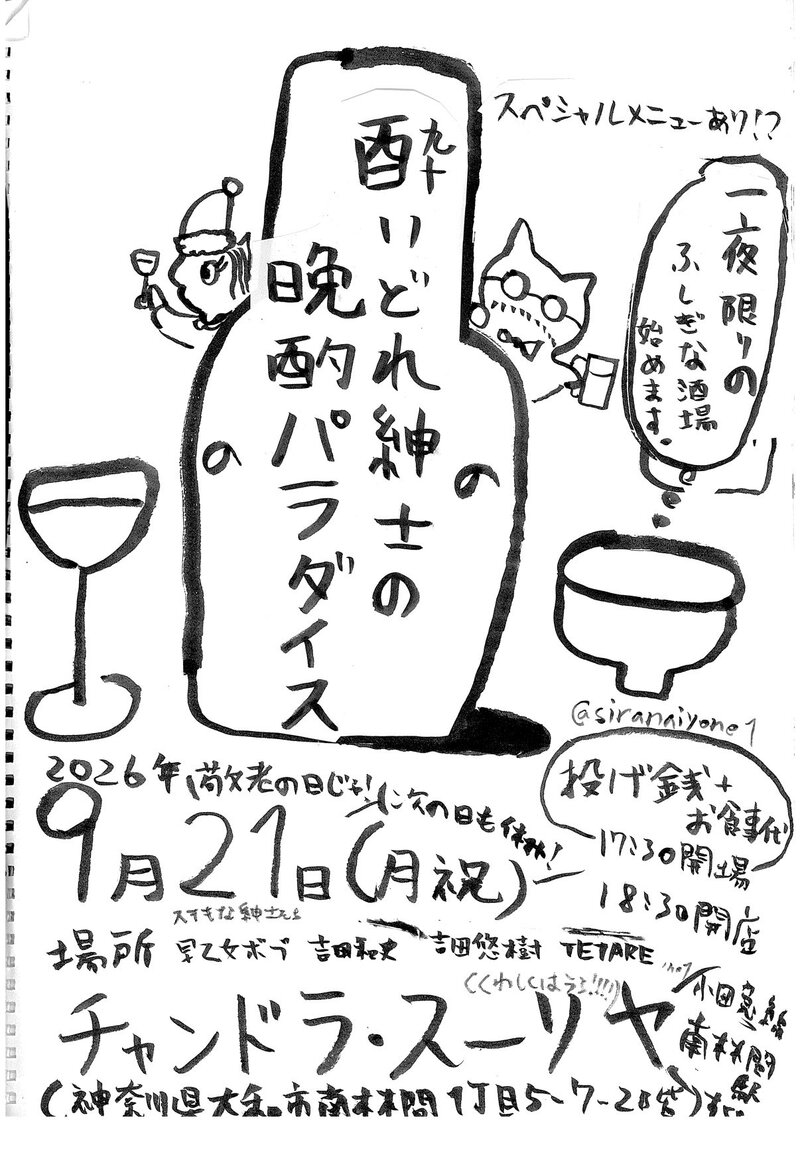 スペシャルメニューあり!?
酔いどれ紳士の
の
晩酌パラダイス
の
一夜限りの
ふしぎな酒場
始めます。
@siranaiyone1
2026年
敬老の日じゃ!
次の日も休み!
9月21日(月祝)
投げ銭+
お食事代
17:30開場
18:30開店
すてきな紳士たち
場所
早乙女ボブ 吉田和史 吉田悠樹 TETARE
(くわしくはうら!!!!)
チャンドラ・スーリヤ
小田急線
南林間駅
(神奈川県大和市南林間1丁目5-7-2